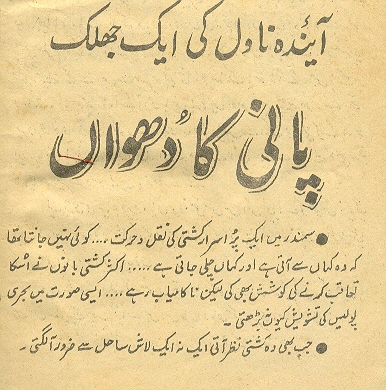 آئندہ ناول کی ایک جھلک
پانی کا دھواں
● سمندر میں ایک پُر اسرار کشتی کی نقل و حرکت .... کوئی نہیں جانتا تھا
کہ وہ کہاں سے آتی ہے اور کہاں چلی جاتی ہے ..... اکثر کشتی بانوں نے اسکا
تعاقب کرنے کی کوشش بھی کی لیکن ناکامیاب رہے .... ایسی صورت میں بحری
پولیس کی تشویش کیوں نہ بڑھتی ۔
● جب بھی وہ کشتی نظر آتی ایک نہ ایک لاش ساحل سے ضرور آلگتی ۔